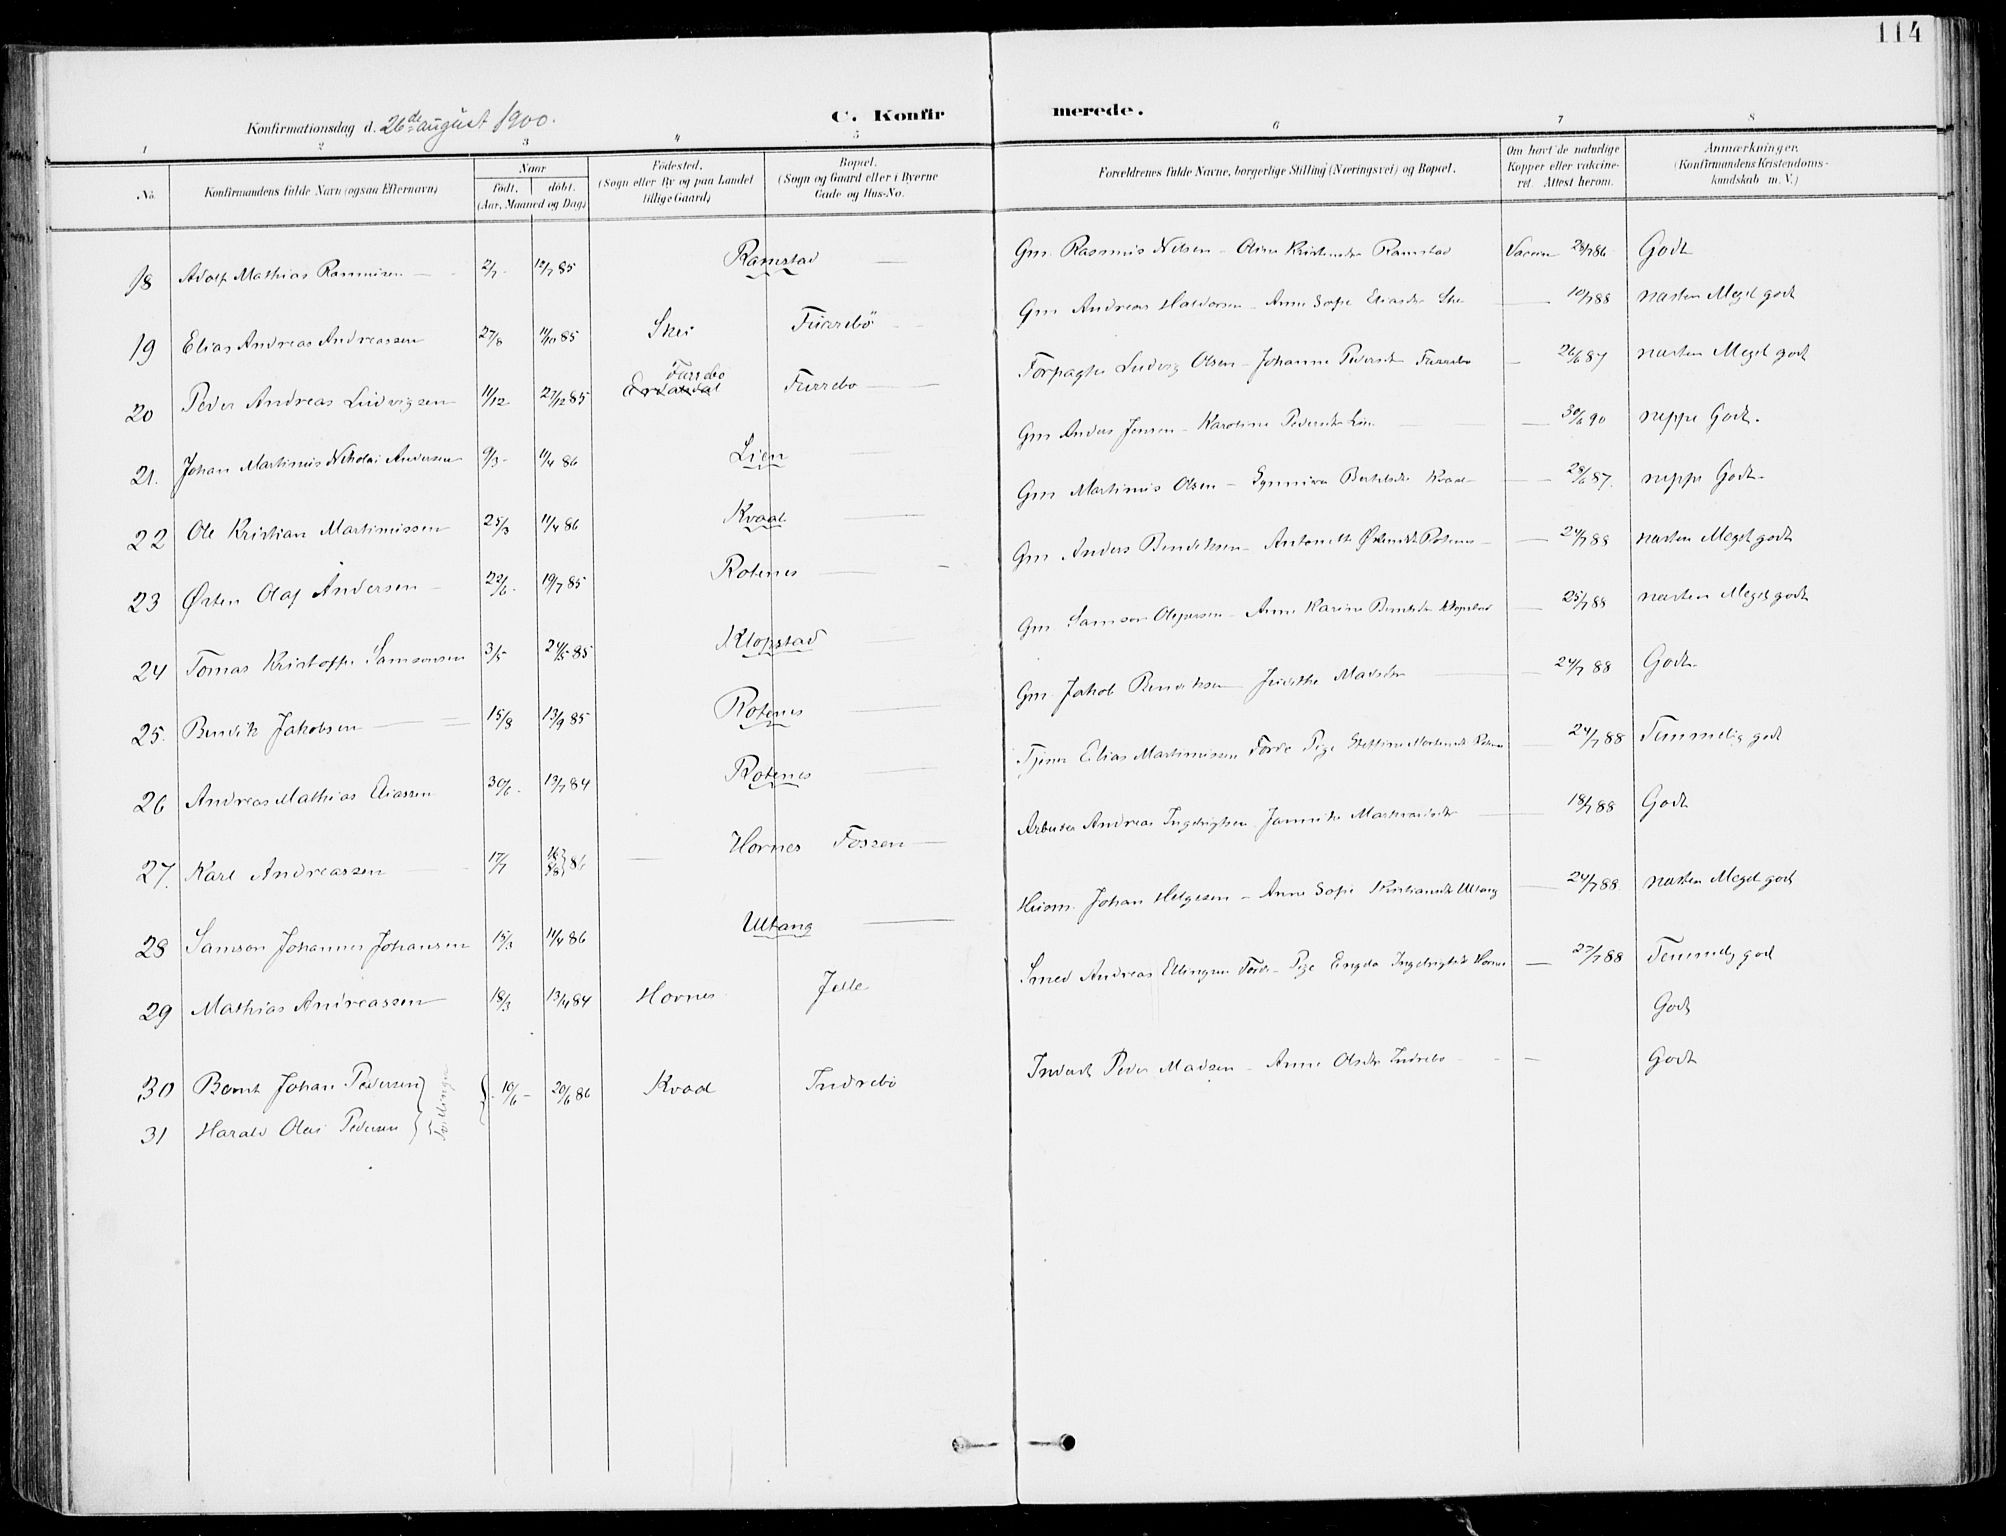 114
Konfirmationsdag d. 26de august 1900.
C. Konfirmerede.
1 2 3 4 5 6 7 8
No. Konfirmandens fulde Navn (ogsaa Efternavn) Naar født. døbt. (Aar, Maaned og Dag) Fødested. (Sogn eller By og paa Landet tillige Gaard) Bopæl. (Sogn og Gaard eller i Byerne Gade og Hus-No. Forældrenes fulde Navne, borgerlige Stilling (Næringsvei) og Bopæl. Om havt de naturlige Kopper eller vaccineret. Attest herom. Anmærkninger. (Konfirmandens Kristendomskundskab m. V.)
18 Adolf Mathias Rasmussen 2/7 12/7 85 Ramstad Gm. Rasmus Nilsen - Oline Kristensdtr Ramstad Vaccin 28/7 86 Godt
19 Elias Andreas Andreassen 27/8 11/10 85 Skei Furrebö Gm Andreas Haldorsen - Anne Sofie Eliasdtr Skei 10/7 88 næsten Meget godt
20 Peder Andreas Ludvigsen 11/12 27/12 85 Erdalsdal Furrebo Furrebo Forpagter Ludvig Olsen - Johanne Pedersdtr Furrebo 26/6 87 næsten Meget godt
21. Johan Martinus Nikolai Andersen 9/3 11/4 86 Lien Gm Anders Jensen - Karoline Pedersdtr Lien 30/6 90 neppe Godt.
22 Ole Kristian Martinussen 25/3 11/4 86 Kvaal Gm Martinus Olsen - Synniva Bertelsdtr Kvaal 28/6 87. neppe Godt
23 Østen Olaf Andersen 22/6 19/7 85 Rotenes Gm Anders Bendiksen - Antonette Østensdtr Rotenes 24/7 88 næsten Meget godt
24 Tomas Kristoffer Samsonsen 3/5 24/5 85 Klopstad Gm Samson Olepersen - Anne Karine Berntsdtr Klopstad 25/7 88 næsten Meget godt
25. Bendik Jakobsen 15/8 13/9 85 Rotenes Gm. Jakob Bendiksen Judithe Madsdtr 24/7 88 Godt
26 Andreas Mathias Eliassen 30/6 13/7 84 Rotenes Tjener Elias Martinussen Förde Pige Stettine Mortensdtr Rotenes 24/7 88 Temmelig godt
27. Karl Andreassen 17/7 86 Hornes Fossen Arbeider Andreas Ingebrigtsen Jannike Martinusdtr 18/7 88 Godt
28 Samson Johannes Johansen 15/3 11/4 86 Ultang Husm. Johan Helgesen - Anne Sofie Kristiansdtr Ultang 24/7 88 næsten Meget godt
29 Mathias Andreassen 18/3 13/4 84 Hornes Jelle Smed Andreas Ellingsen Förde - Pige Engda Ingebrigtsdtr Hornes 27/7 88 Temmelig god
Godt
30 Bernt Johan Pedersen Tvillinger 10/6 20/6 86 Kvaal Indrebö Inderst Peder Madsen - Anne Olsdtr Indrebo Godt
31 Harald Olai Pedersen